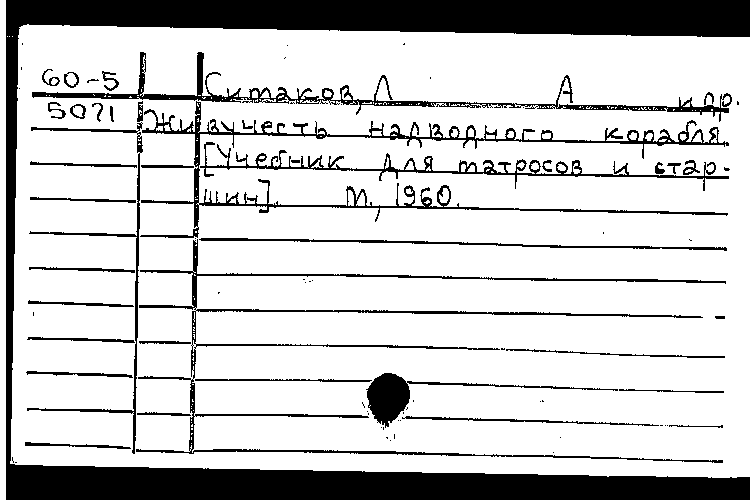 60-5 Ситаков, Л А и др.
5071 Живучесть надводного корабля
[Учебник для матросов и стар-
шин]. М., 1960.